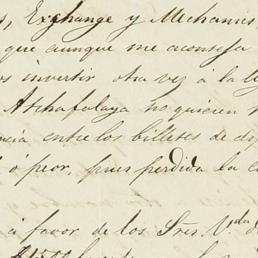 s, Exchange y Mechanics
que aunque me aconseja
os invertir otra vez á la ley
Atchafalaya no quieren
ncia entre los billetes de di
ó peor, pues perdida la co
á favor de los Sres. V.da d